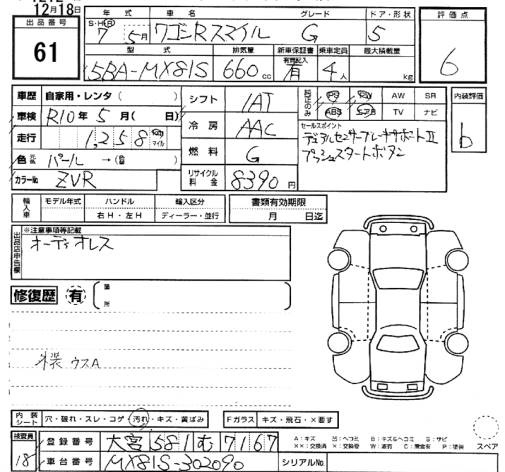 12月18日
出品番号 61
年式 S・H・R 7年 5月
車名 ワゴンRスマイル
グレード G
ドア・形状 5
評価点 6
型式 5BA-MX81S
排気量 660cc
新車保証書 有 記入有
乗車定員 4人
最大積載量 kg
車歴 自家用・レンタ( )
シフト IAT
純正のみ PS PW AW SR
ABS エアB TV ナビ
内装評価 b
車検 R10年5月( 日)
冷房 AAC
セールスポイント
デュアルセンサーブレーキサポートⅡ
プッシュスタートボタン
走行 1,258 km マイル
燃料 G
色 元色 パール→(色替 )
リサイクル料金 8390円
カラーNo ZVR
輸入車 モデル年式 ハンドル 右H・左H 輸入区分 ディーラー・並行
書類有効期限 月 日迄
出品店申告欄 ※注意事項等記載
オーディオレス
修復歴 有 箇所
ウスA
内装シート 穴・破れ・スレ・コゲ・汚れ・キズ・黄ばみ
Fガラス キズ・飛石・×要す
検査員 18
登録番号 大宮 581 む 7167
車台番号 MX81S-302090
シリアルNo.
スペア